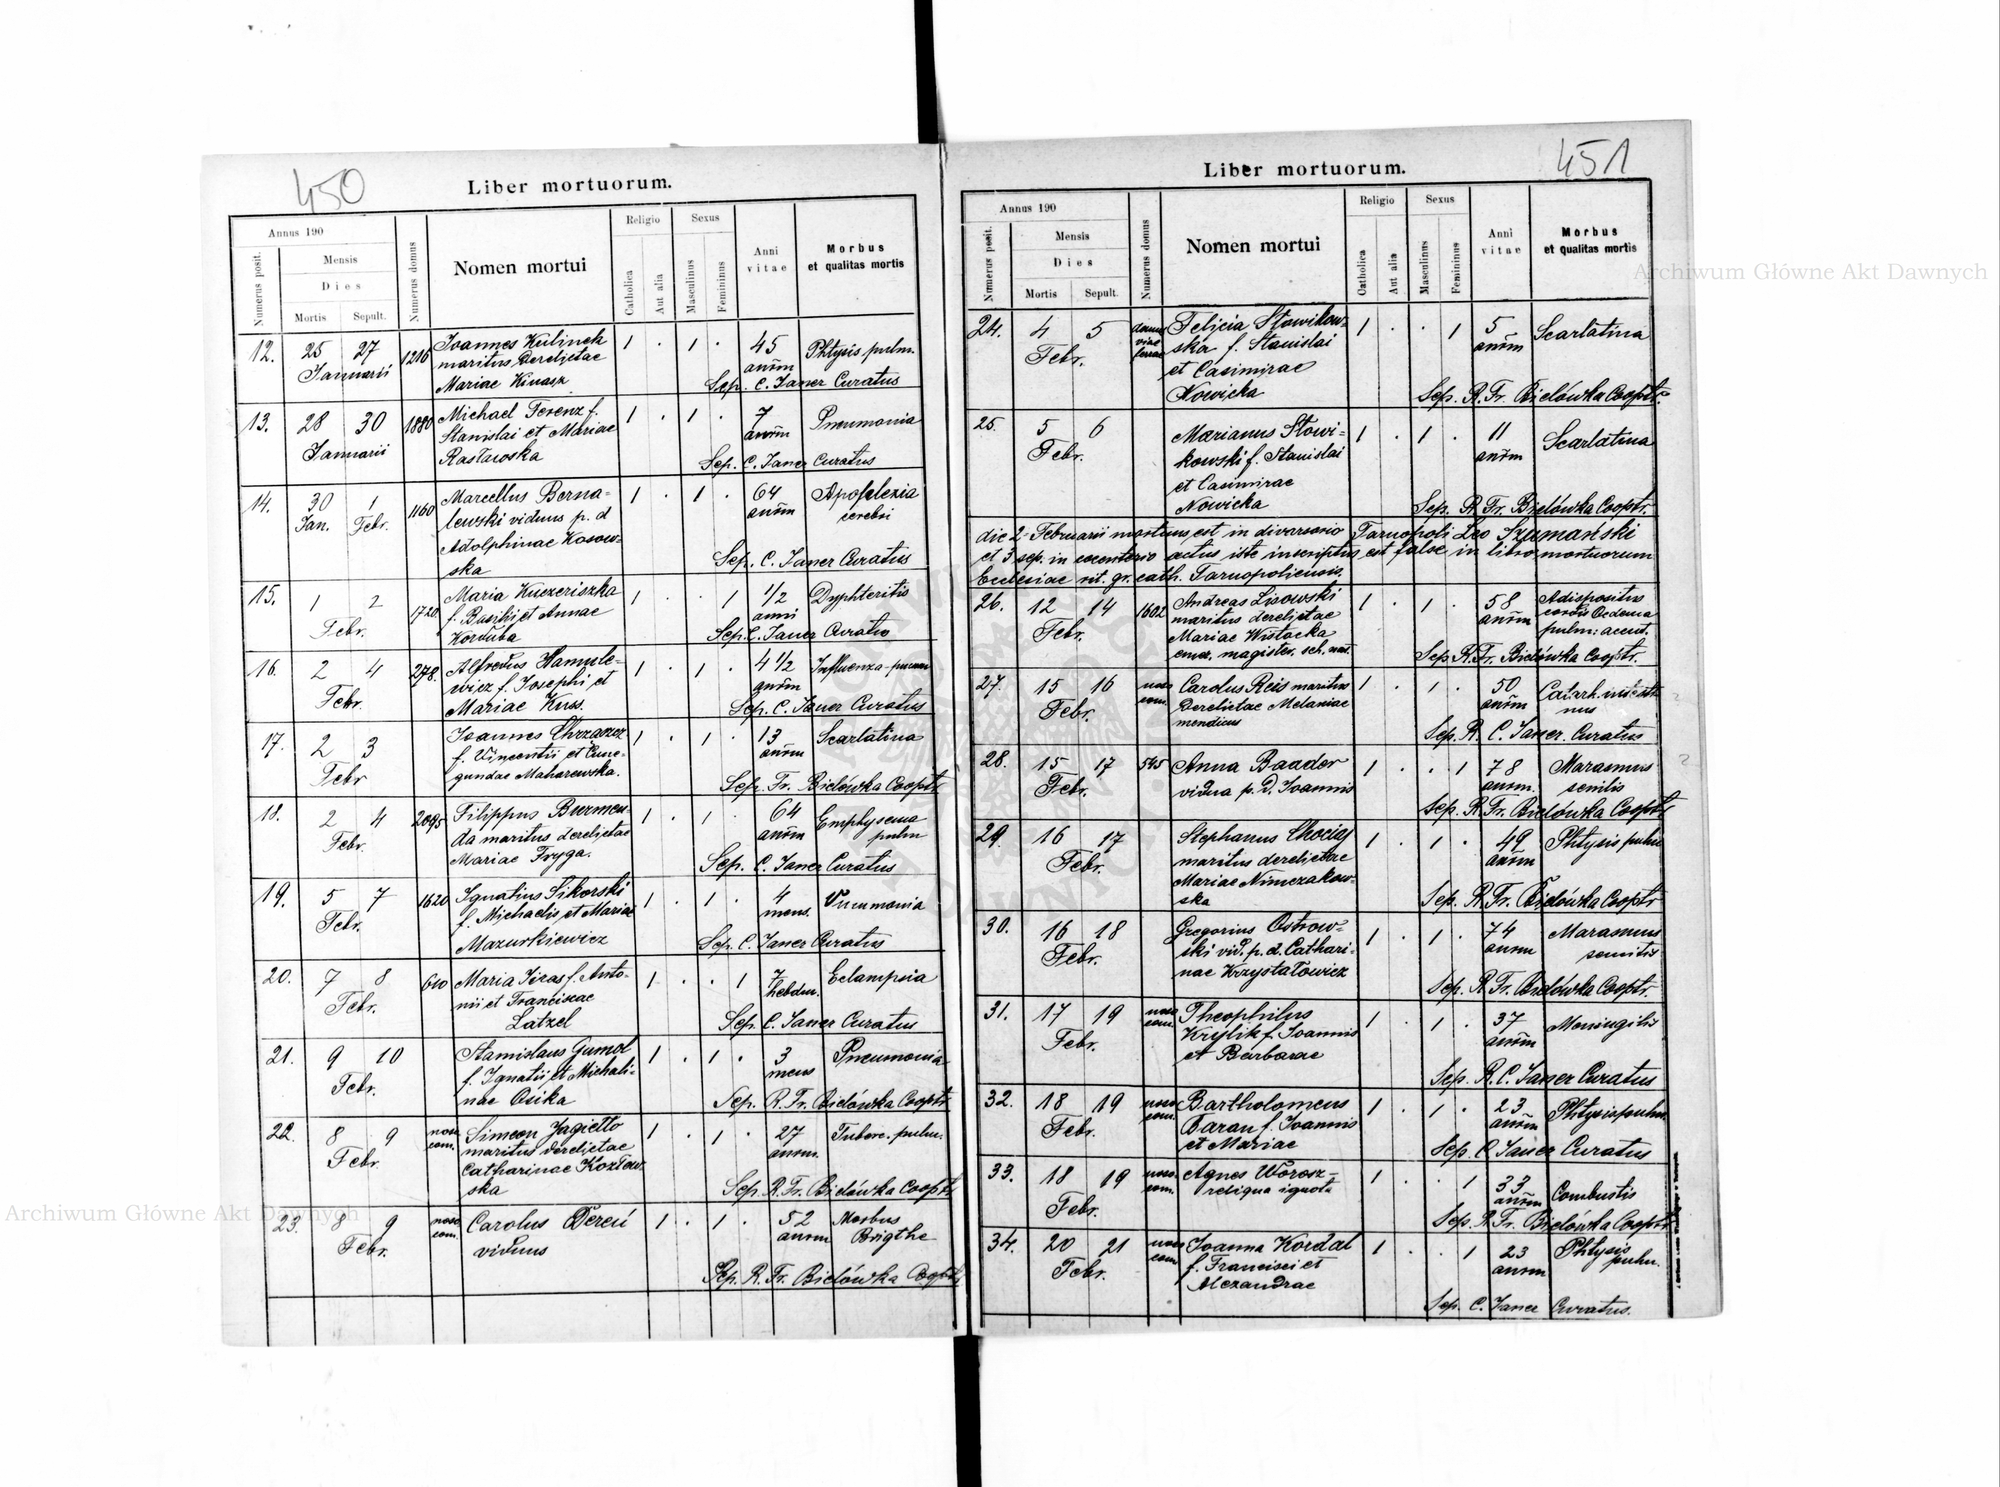 450
Liber mortuorum.
Annus 190
Numerus posit.
Mensis
Dies
Mortis Sepult.
Numerus domus
Nomen mortui
Religio
Catholica
Aut alia
Sexus
Masculinus
Femininus
Anni vitae
Morbus
et qualitas mortis
12. 25 27 1216 Joannes Kulinek 1 . 1 . 45 Phtysis pulm.
Januarii maritus derelictae anorm
Mariae Kinasz Sep. C. Janer Curatus
13. 28 30 1880 Michael Terenz f. 1 . 1 . 7 Pneumonia
Januarii Stanislai et Mariae anorm
Rastawska Sep. C. Janer Curatus
14. 30 1 1160 Marcellus Berna- 1 . 1 . 64 Apoplexia
Jan. Febr. lewski viduus p. d anorm cerebri
Adolphinae Kosow-
ska Sep. C. Janer Curatus
15. 1 2 1720 Maria Kuczeriszka 1 . . 1 1/2 Dyphteritis
Febr. f. Basilii et Annae anni
Korduba Sep. C. Janer Curatus
16. 2 4 278. Alfredus Hamule- 1 . 1 . 4 1/2 Influenza-pneum
Febr. wicz f. Josephi et anorm
Mariae Kuss. Sep. C. Janer Curatus
17. 2 3 Joannes Chrzanoz 1 . 1 . 13 Scarlatina
Febr f. Vincentii et Cune- anorm
gundae Maharewska. Sep. Fr. Bielówka Cooptr
18. 2 4 2095 Filippus Burmen- 1 . 1 . 64 Emphysema
Febr. da maritus derelictae anorm pulm
Mariae Fryga. Sep. C. Janer Curatus
19. 5 7 1620 Ignatius Sikorski 1 . 1 . 4 Pneumonia
Febr. f. Michaelis et Mariae mens.
Mazurkiewicz Sep. C. Janer Curatus
20. 7 8 610 Maria Jiras f. Anto- 1 . . 1 7 Eclampsia
Febr. nii et Franciscae hebdm.
Latzel Sep. C. Janer Curatus
21. 9 10 Stanislaus Gumol 1 . 1 . 3 Pneumonia
Febr. f. Ignatii et Michali- mens
nae Osika Sep. R. Fr. Bielówka Cooptr
22. 8 9 noso Simeon Jagiełło 1 . 1 . 27 Tuberc. pulm.
Febr. com. maritus derelictae anorm.
Catharinae Kozłow-
ska Sep. R. Fr. Bielówka Cooptr
23. 8 9 noso Carolus Dereń 1 . 1 . 52 Morbus
Febr. com. viduus anorm Brigthe
Sep. R. Fr. Bielówka Cooptr
451
Liber mortuorum.
Annus 190
Numerus posit.
Mensis
Dies
Mortis Sepult.
Numerus domus
Nomen mortui
Religio
Catholica
Aut alia
Sexus
Masculinus
Femininus
Anni vitae
Morbus
et qualitas mortis
24. 4 5 domus Felicia Słowikow- 1 . . 1 5 Scarlatina
Febr. viae ferrae ska f. Stanislai anorm
et Casimirae
Nowicka Sep. R. Fr. Bielówka Cooptr.
25. 5 6 Marianus Słowi- 1 . 1 . 11 Scarlatina
Febr. kowski f. Stanislai anorm
et Casimirae
Nowicka Sep. R. Fr. Bielówka Cooptr.
die 2 Februarii mortuus est in divarsorio Tarnopoli Leo Szumański
et 3 sep. in coemterio actus iste inscriptus est false in libro mortuorum
Ecclesiae rit. gr. cath. Tarnopoliensis.
26. 12 14 1602 Andreas Lisowski 1 . 1 . 58 Adispositus
Febr. maritus derelictae anorm cordis Oedema
Mariae Wistocka pulm: accut.
emer. magister. sch. Sep. R. Fr. Bielówka Cooptr.
27. 15 16 noso Carolus Reis maritus 1 . 1 . 50 Catarh.
Febr. com. derelictae Melaniae anorm
mendicus Sep. R. C. Janer. Curatus
28. 15 17 545 Anna Baader 1 . . 1 78 Marasmus
Febr. vidua p. d. Joannis anorm. senilis
Sep. R. Fr. Bielówka Cooptr
29. 16 17 Stephanus Chociaj 1 . 1 . 49 Phtysis pulm
Febr. maritus derelictae anorm
Mariae Nimczakow-
ska Sep. R. Fr. Bielówka Cooptr
30. 16 18 Gregorius Ostrow- 1 . 1 . 74 Marasmus
Febr. ski vid. p. d. Cathari- anorm senilis
nae Krzyształowicz Sep. R. Fr. Bielówka Cooptr.
31. 17 19 noso Theophilus 1 . 1 . 37 Meningitis
Febr. com. Krylik f. Joannis anorm
et Barbarae Sep. R. C. Janer Curatus
32. 18 19 noso Bartholomeus 1 . 1 . 23 Phtysis pulm
Febr. com. Baran f. Joannis anorm
et Mariae Sep. C Janer Curatus
33. 18 19 noso Agnes Worosz- 1 . . 1 33 Combustis
Febr. com. reliqua ignota anorm
Sep. R. Fr. Bielówka Cooptr
34. 20 21 noso Joanna Kordal 1 . . 1 23 Phtysis
Febr. com. f. Francisci et anorm pulm.
Alexandrae
Sep. C. Janer Curatus.
Archiwum Główne Akt Dawnych
Archiwum Główne Akt Dawnych